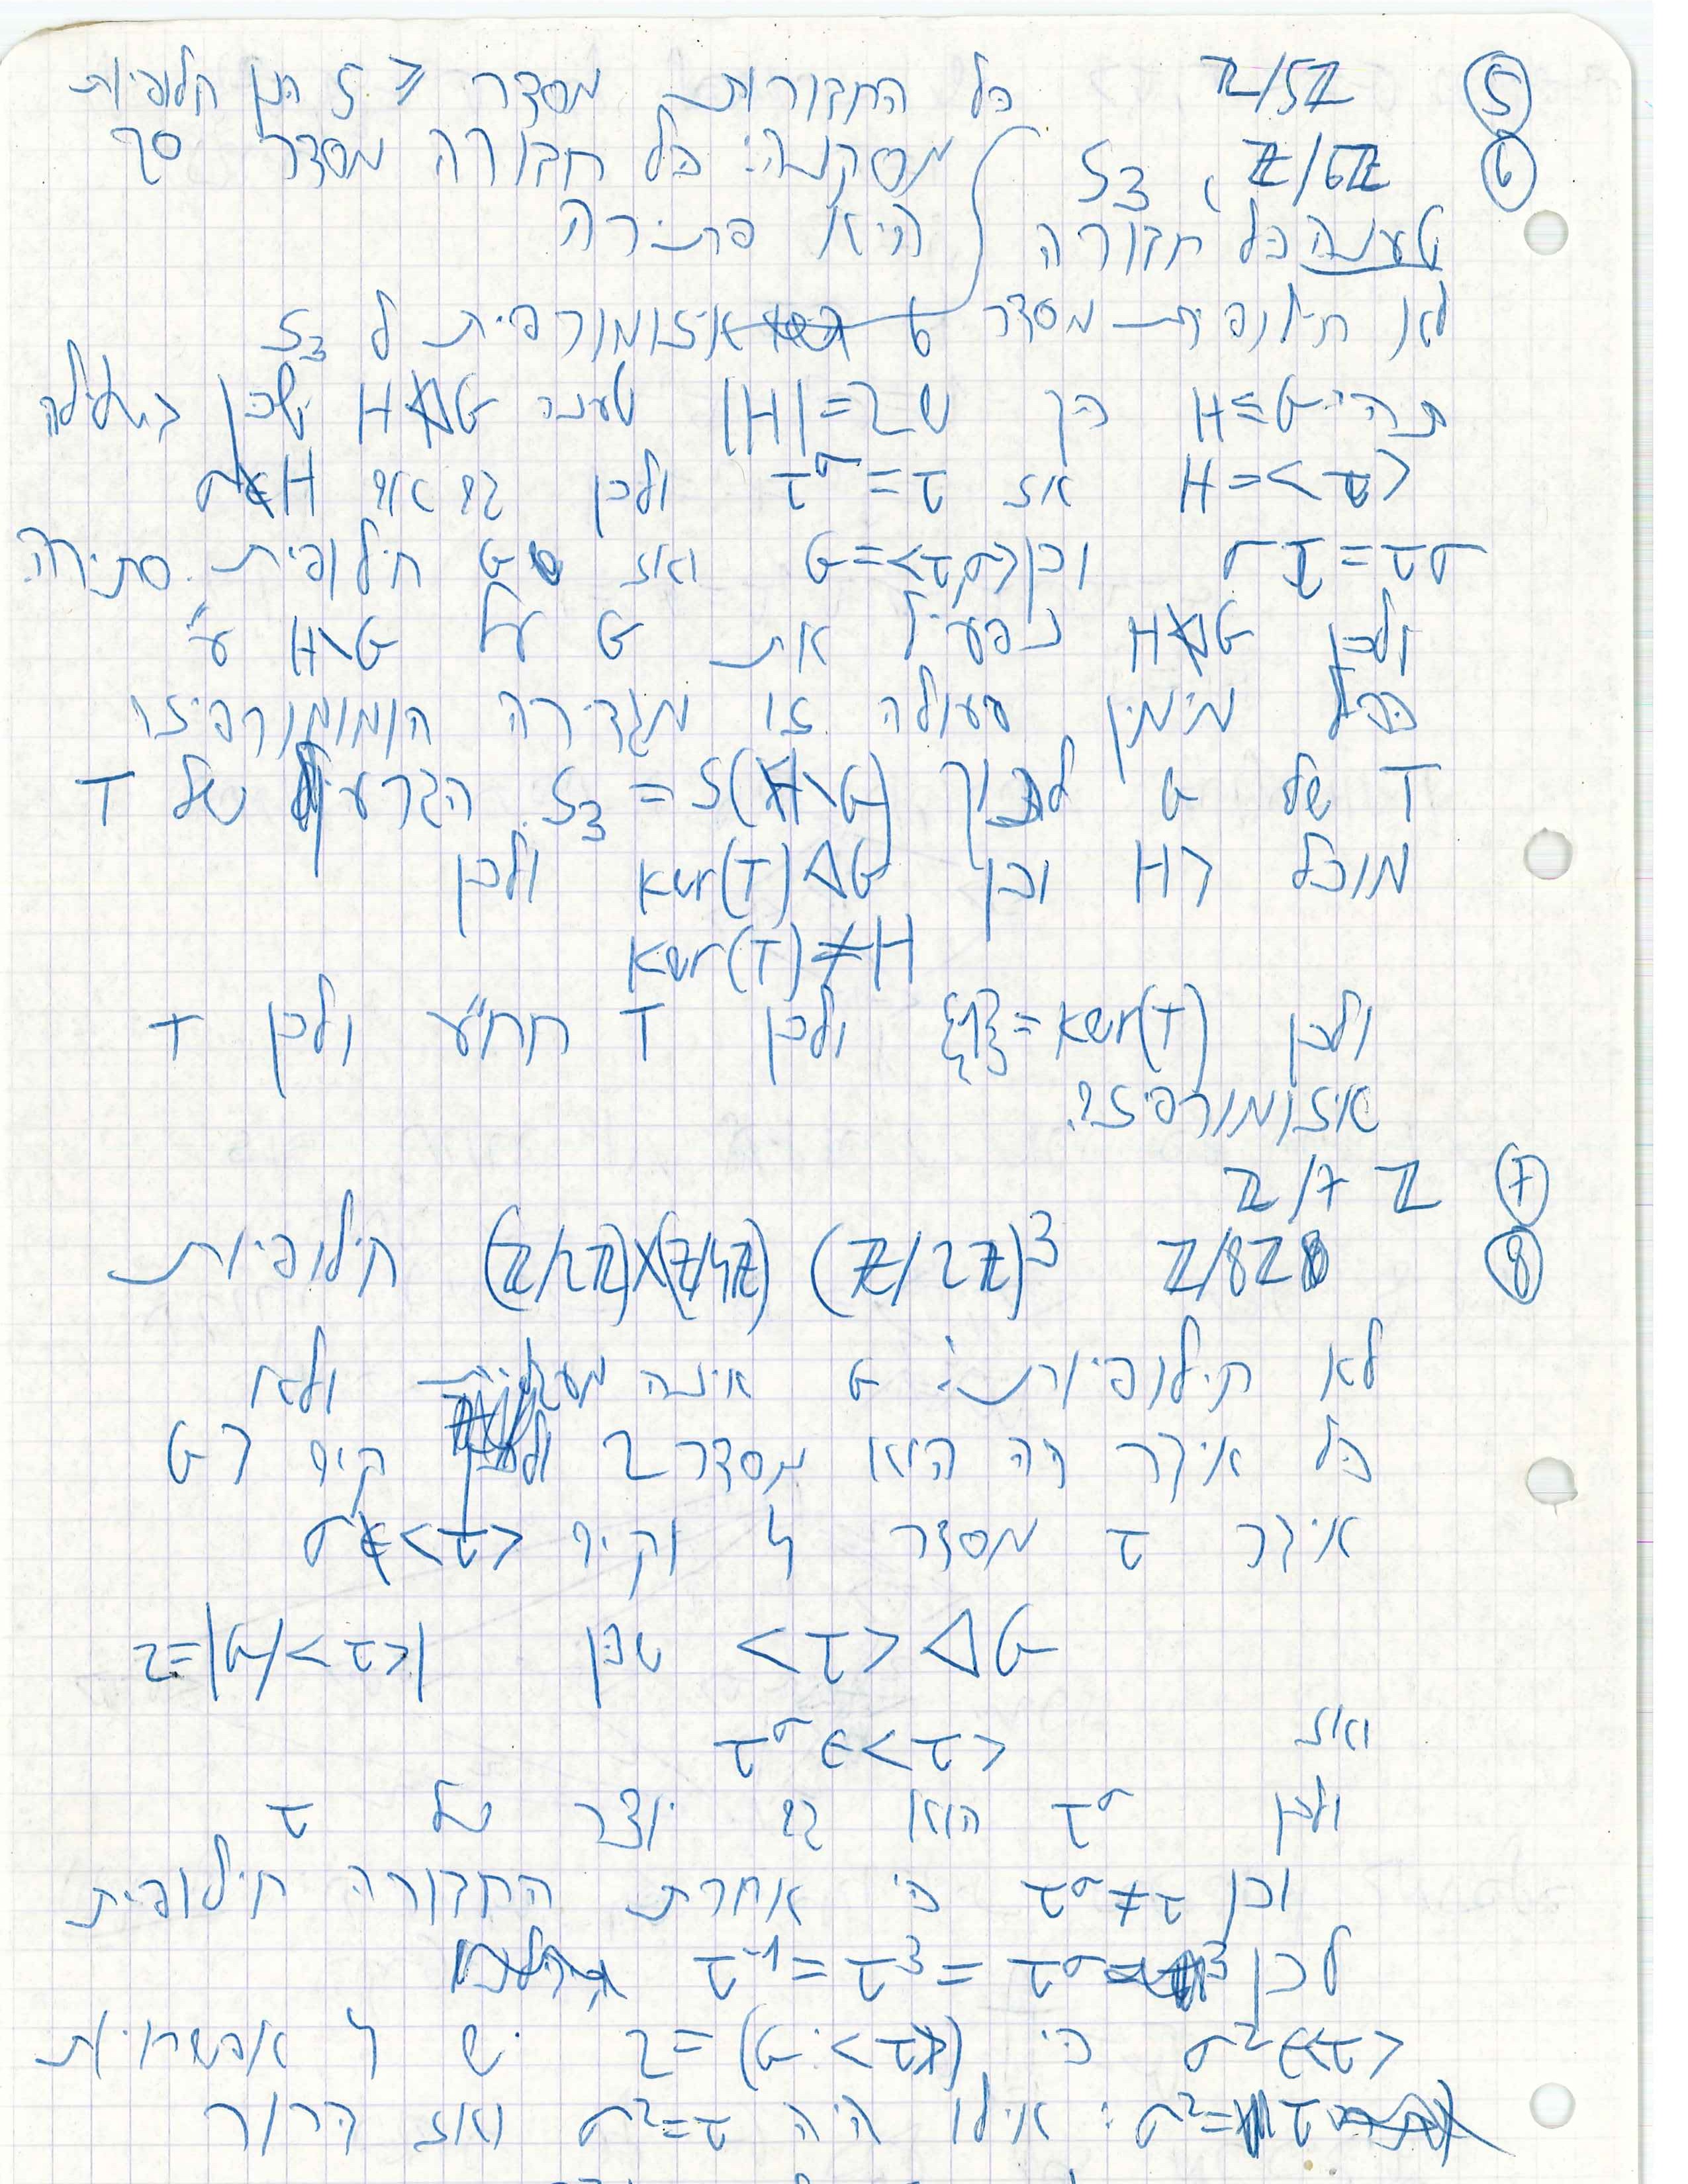 ⑤ Z/5Z כל החבורות מסדר ≤ 5 הן חלופיות
⑥ Z/6Z , S₃ מסקנה: כל חבורה מסדר סך
טענה כל חבורה היא פתירה
לא חילופית מסדר 6 איזומורפית ל S₃
תהי H≤G כך ש |H|=2 טענה H⋪G שכן בשלילה
H=<τ> אז τ^σ=τ ולכן גם אם σ∉H
στ=τσ וכן G=<σ,τ> ואז G חילופית. סתירה.
ולכן H⋪G נפעיל את G על H\G ע״י
כפל מימין פעולה זו מגדירה הומומורפיזם
T של G לתוך S(H\G)=S₃. הגרעין של T
מוכל בH וכן ker(T)◁G ולכן
ker(T)≠H
ולכן ker(T)={1} ולכן T חח״ע ולכן T
איזומורפיזם.
⑦ Z/7Z
⑧ Z/8Z (Z/2Z)³ (Z/2Z)×(Z/4Z) חילופיות
לא חילופיות: G אינה מעגלית ולא
כל איבר בה הוא מסדר 2 ולכן קיים בG
איבר τ מסדר 4 וקיים σ∉<τ>
<τ>◁G שכן |G/<τ>|=2
ואז τ^σ∈<τ>
ולכן τ^σ הוא גם יוצר של τ
וכן τ^σ≠τ כי אחרת החבורה חילופית
לכן τ^σ=τ³=τ⁻¹
σ²∈<τ> כי (G:<τ>)=2 יש 4 אפשרויות
σ²=τ : אילו היה σ²=τ ואז